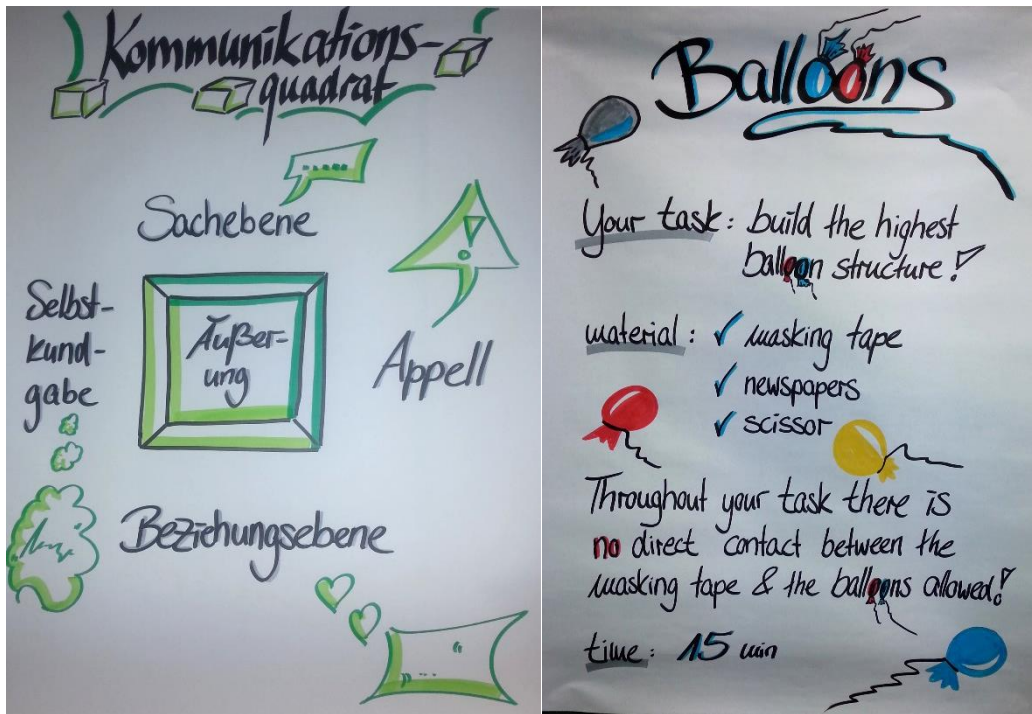 Kommunikations-
quadrat
Sachebene
Selbst-
kund-
gabe
Äußer-
ung
Appell
Beziehungsebene
Balloons
Your task: build the highest
balloon structure!
material: ✓ masking tape
✓ newspapers
✓ scissor
Throughout your task there is
no direct contact between the
masking tape & the balloons allowed!
time: 15 min